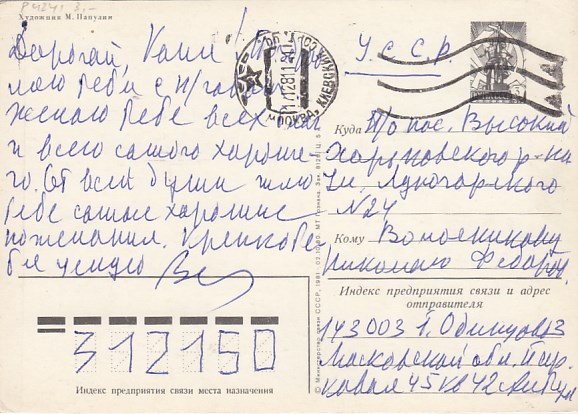 Р424! 3.-
Художник М. Папулин
Дорогай, Коля! Поздрав
ляю тебя с Н/годом
желаю тебе всех благ
и всего самого хороше-
го. От всей души шлю
тебе самые хорошие
пожелания. Крепко те-
бя целую
СССР
МОСКВА, КИЕВСКИЙ
У.С.С.Р.
Куда П/о пос. Высокий
Харьковского р-на
ул. Луногорского
№24
Кому
Николаю Федоров.
Индекс предприятия связи и адрес
отправителя
143003 г. Одинцово3
Московской обл.
45 кв 42
312150
Индекс предприятия связи места назначения
© Министерство связи СССР, 1981